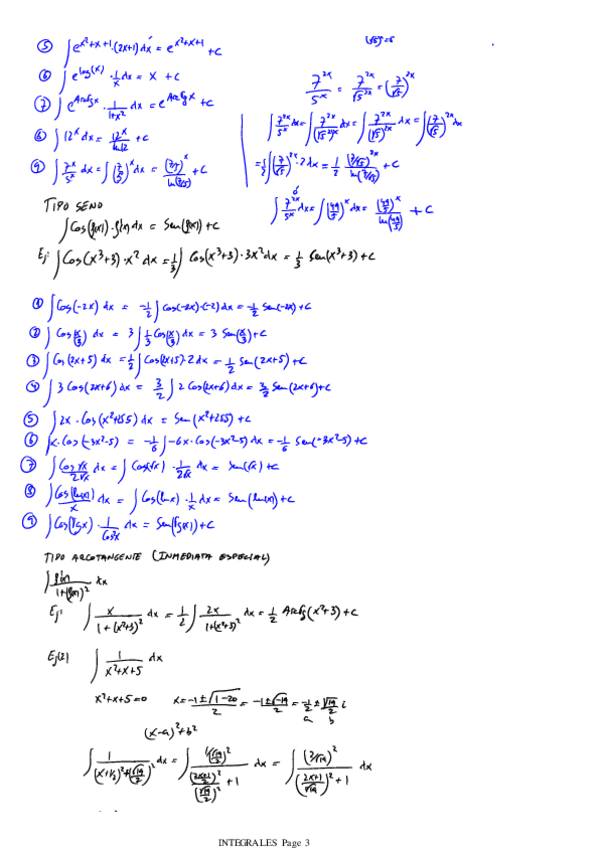 ⑤ ∫ e^(x²+x+1)·(2x+1) dx = e^(x²+x+1) + C
⑥ ∫ e^(log(x))·1/x dx = x + C
⑦ ∫ e^(Arctg x)·1/(1+x²) dx = e^(Arctg x) + C
⑧ ∫ 12^x dx = 12^x/ln12 + C
⑨ ∫ 7^x/5^x dx = ∫ (7/5)^x dx = (7/5)^x/ln(7/5) + C
(√5)²=5
7^(2x)/5^x = 7^(2x)/√5^(2x) = (7/√5)^(2x)
∫ 7^(2x)/5^x dx = ∫ 7^(2x)/(√5²)^x dx = ∫ 7^(2x)/(√5)^(2x) dx = ∫ (7/√5)^(2x) dx
= 1/2 ∫ (7/√5)^(2x)·2 dx = 1/2 (7/√5)^(2x)/ln(7/√5) + C
ó
∫ 7^(2x)/5^x dx = ∫ (49/5)^x dx = (49/5)^x/ln(49/5) + C
TIPO SENO
∫ Cos(f(x))·f'(x) dx = Sen(f(x)) + C
Ej: ∫ Cos(x³+3)·x² dx = 1/3 ∫ Cos(x³+3)·3x² dx = 1/3 Sen(x³+3) + C
① ∫ Cos(-2x) dx = -1/2 ∫ Cos(-2x)·(-2) dx = -1/2 Sen(-2x) + C
② ∫ Cos(x/3) dx = 3 ∫ 1/3 Cos(x/3) dx = 3 Sen(x/3) + C
③ ∫ Cos(2x+5) dx = 1/2 ∫ Cos(2x+5)·2 dx = 1/2 Sen(2x+5) + C
④ ∫ 3 Cos(2x+6) dx = 3/2 ∫ 2 Cos(2x+6) dx = 3/2 Sen(2x+6) + C
⑤ ∫ 2x·Cos(x²+255) dx = Sen(x²+255) + C
⑥ ∫ x·Cos(-3x²-5) = -1/6 ∫ -6x·Cos(-3x²-5) dx = -1/6 Sen(-3x²-5) + C
⑦ ∫ Cos√x/2√x dx = ∫ Cos(√x)·1/2√x dx = Sen(√x) + C
⑧ ∫ Cos(ln(x))/x dx = ∫ Cos(lnx)·1/x dx = Sen(ln(x)) + C
⑨ ∫ Cos(tgx)·1/Cos²x dx = Sen(tg(x)) + C
TIPO ARCOTANGENTE (INMEDIATA ESPECIAL)
∫ f'(x)/(1+(f(x))²) dx
Ej: ∫ x/(1+(x²+3)²) dx = 1/2 ∫ 2x/(1+(x²+3)²) dx = 1/2 Arctg(x²+3) + C
Ej(2) ∫ 1/(x²+x+5) dx
x²+x+5=0 x = (-1±√(1-20))/2 = (-1±√-19)/2 = -1/2 ± √19/2 i
a b
(x-a)²+b²
∫ 1/((x+1/2)²+(√19/2)²) dx = ∫ (1/(√19/2))²/(((2x+1)/2)²/(√19/2)² + 1) dx = ∫ (2/√19)²/(((2x+1)/√19)² + 1) dx
INTEGRALES Page 3